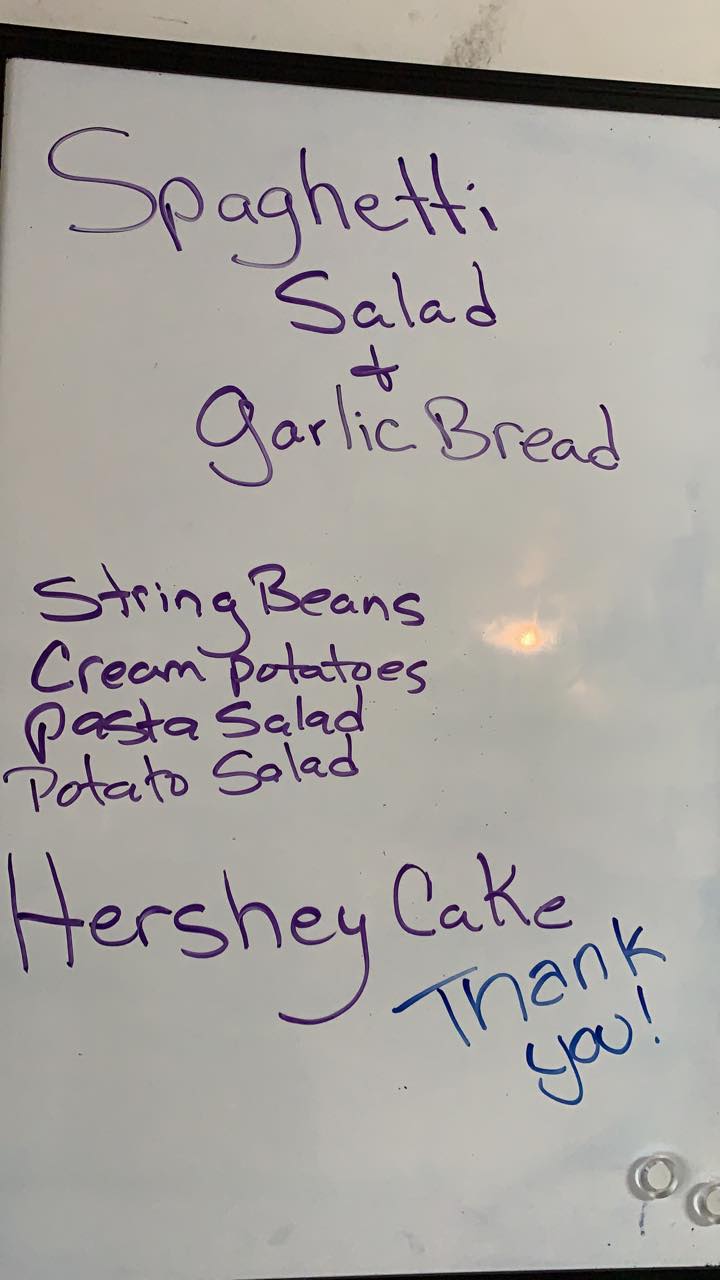 Spaghetti
Salad
+
Garlic Bread
String Beans
Cream Potatoes
Pasta Salad
Potato Salad
Hershey Cake
Thank
you!